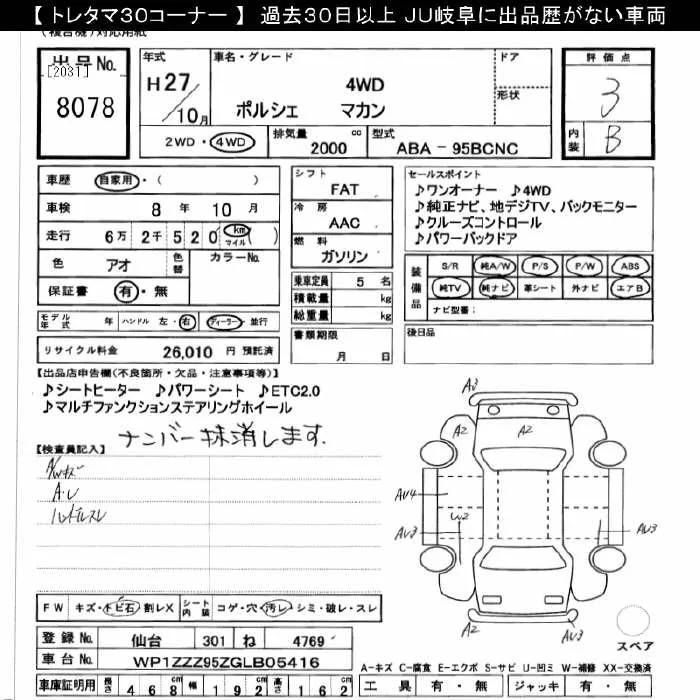 【 トレタマ30コーナー 】 過去30日以上 JU岐阜に出品歴がない車両
(複合機)対応用紙
出品No.
[2031]
8078
年式
H27/10月
車名・グレード
4WD
ポルシェ マカン
ドア
形状
評価点
3
内装
B
2WD・4WD
排気量
2000 cc
型式
ABA - 95BCNC
車歴 自家用・( )
車検 8 年 10 月
走行 6万 2千 5 2 0 km マイル ( )
色 アオ 色替 カラーNo.
保証書 有・無
モデル年式 年 ハンドル 左・右 ディーラー・並行
リサイクル料金 26,010 円 預託済
シフト
FAT
冷房
AAC
燃料
ガソリン
乗車定員 5 名
積載量 kg
総重量 kg
書類期限
月 日
セールスポイント
♪ワンオーナー ♪4WD
♪純正ナビ、地デジTV、バックモニター
♪クルーズコントロール
♪パワーバックドア
装備品
S/R 純A/W P/S P/W ABS
純TV 純ナビ 革シート 外ナビ エアB
ナビ型番:
後日品
【出品店申告欄(不良箇所・欠品・注意事項等)】
♪シートヒーター ♪パワーシート ♪ETC2.0
♪マルチファンクションステアリングホイール
ナンバー抹消します.
【検査員記入】
A/Wキズ
A・レ
ハンドルスレ
A3
A2
A2
A2
AU4
AU3
W2
AU3
A2
AU3
スペア
FW キズ・トビ石・割レX シート内装 コゲ・穴・汚レ・シミ・破レ・スレ
登録No. 仙台 301 ね 4769
車台No. WP1ZZZ95ZGLB05416
車庫証明用 長さ 4 6 8 cm 幅 1 9 2 cm 高さ 1 6 2 cm
A-キズ C-腐食 E-エクボ S-サビ U-凹ミ W-補修 XX-交換済
工具 有・無 ジャッキ 有・無